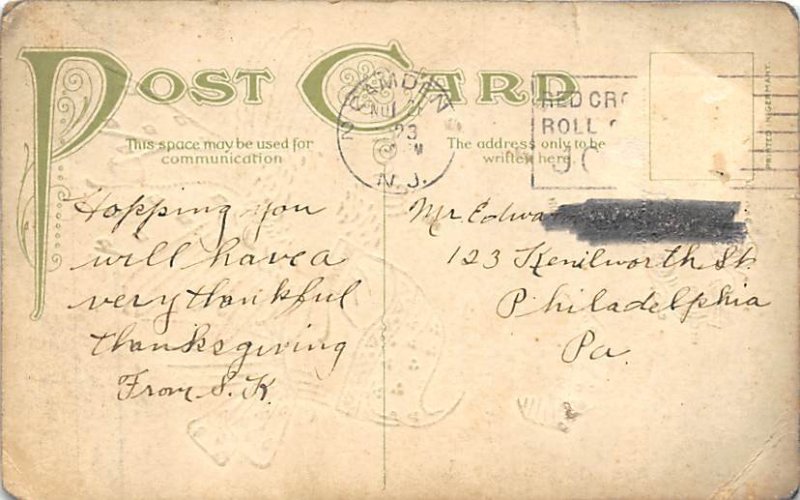 POST CARD
This space may be used for
communication
The address only to be
written here.
CAMDEN
23
N.J.
RED CR
ROLL
JO
PRINTED IN GERMANY.
Hopping you
will have a
very thankful
thanksgiving
From S. K.
Mr Edwa
123 Kenilworth St.
Philadelphia
Pa.